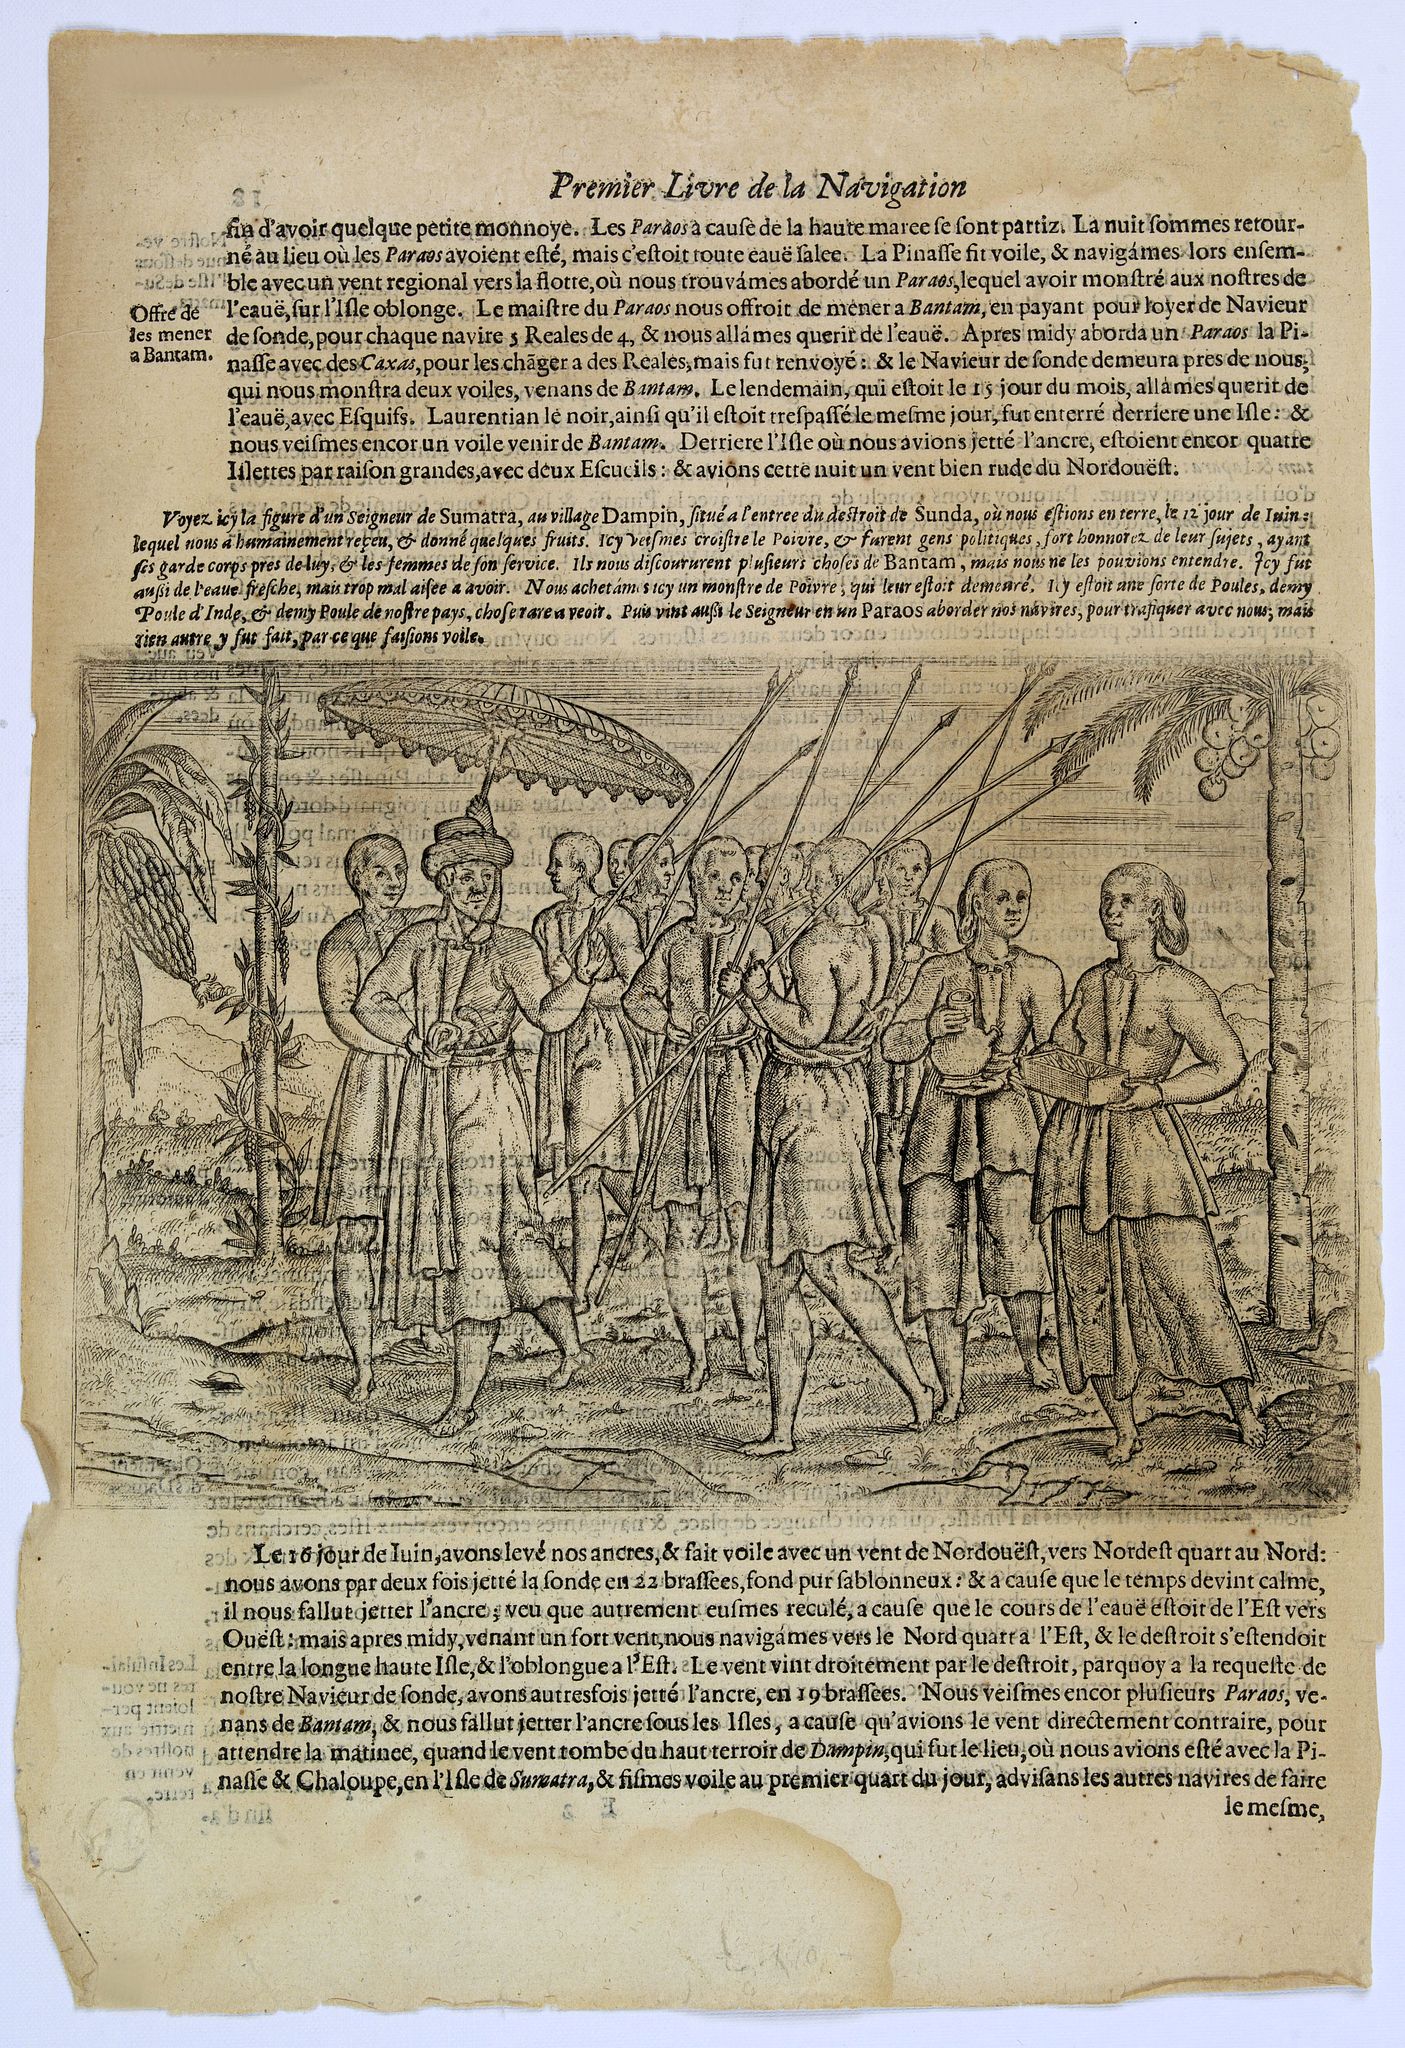 Premier Livre de la Navigation
fin d'avoir quelque petite monnoye. Les Paraos à cauſe de la haute maree ſe ſont partiz. La nuit ſommes retour-
né au lieu où les Paraos avoient eſté, mais c'eſtoit toute eauë ſalee. La Pinaſſe fit voile, & navigámes lors enſem-
ble avec un vent regional vers la flotte, où nous trouvámes abordé un Paraos, lequel avoir monſtré aux noſtres de
l'eauë, ſur l'Iſle oblonge. Le maiſtre du Paraos nous offroit de mener a Bantam, en payant pour loyer de Navieur
de ſonde, pour chaque navire 5 Reales de 4, & nous allámes querir de l'eauë. Apres midy aborda un Paraos la Pi-
naſſe avec des Caxas, pour les chãger a des Reales, mais fut renvoyé: & le Navieur de ſonde demeura pres de nous,
qui nous monſtra deux voiles, venans de Bantam. Le lendemain, qui eſtoit le 15 jour du mois, allámes querir de
l'eauë, avec Eſquifs. Laurentian le noir, ainſi qu'il eſtoit treſpaſſé le meſme jour, fut enterré derriere une Iſle: &
nous veiſmes encor un voile venir de Bantam. Derriere l'Iſle où nous avions jetté l'ancre, eſtoient encor quatre
Iſlettes par raiſon grandes, avec deux Eſcueils: & avions cette nuit un vent bien rude du Nordouëſt.
Offre de
les mener
a Bantam.
Voyez icy la figure d'un Seigneur de Sumatra, au village Dampin, ſitué a l'entree du deſtroit de Sunda, où nous eſtions en terre, le 12 jour de Iuin:
lequel nous a humainement reçeu, & donné quelques fruits. Icy veiſmes croiſtre le Poivre, & furent gens politiques, fort honnorez de leur ſujets, ayant
ſes garde corps pres de luy, & les femmes de ſon ſervice. Ils nous diſcoururent pluſieurs choſes de Bantam, mais nous ne les pouvions entendre. Icy fut
auſſi de l'eaue freſche, mais trop mal aiſee a avoir. Nous achetámes icy un monſtre de Poivre, qui leur eſtoit demeuré. Il y eſtoit une ſorte de Poules, demy
Poule d'Inde, & demy Poule de noſtre pays, choſe rare a veoir. Puis vint auſſi le Seigneur en un Paraos aborder nos navires, pour trafiquer avec nous, mais
rien autre y fut fait, par ce que faiſions voile.
Le 16 jour de Iuin, avons levé nos ancres, & fait voile avec un vent de Nordouëſt, vers Nordeſt quart au Nord:
nous avons par deux fois jetté la ſonde en 22 braſſees, fond pur ſablonneux: & a cauſe que le temps devint calme,
il nous fallut jetter l'ancre; veu que autrement euſmes reculé, a cauſe que le cours de l'eauë eſtoit de l'Eſt vers
Ouëſt: mais apres midy, venant un fort vent, nous navigámes vers le Nord quart a l'Eſt, & le deſtroit s'eſtendoit
entre la longue haute Iſle, & l'oblongue a l'Eſt. Le vent vint droitement par le deſtroit, parquoy a la requeſte de
noſtre Navieur de ſonde, avons autresfois jetté l'ancre, en 19 braſſees. Nous veiſmes encor pluſieurs Paraos, ve-
nans de Bantam, & nous fallut jetter l'ancre ſous les Iſles, a cauſe qu'avions le vent directement contraire, pour
attendre la matinee, quand le vent tombe du haut terroir de Dampin, qui fut le lieu, où nous avions eſté avec la Pi-
naſſe & Chaloupe, en l'Iſle de Sumatra, & fiſmes voile au premier quart du jour, adviſans les autres navires de faire
le meſme,